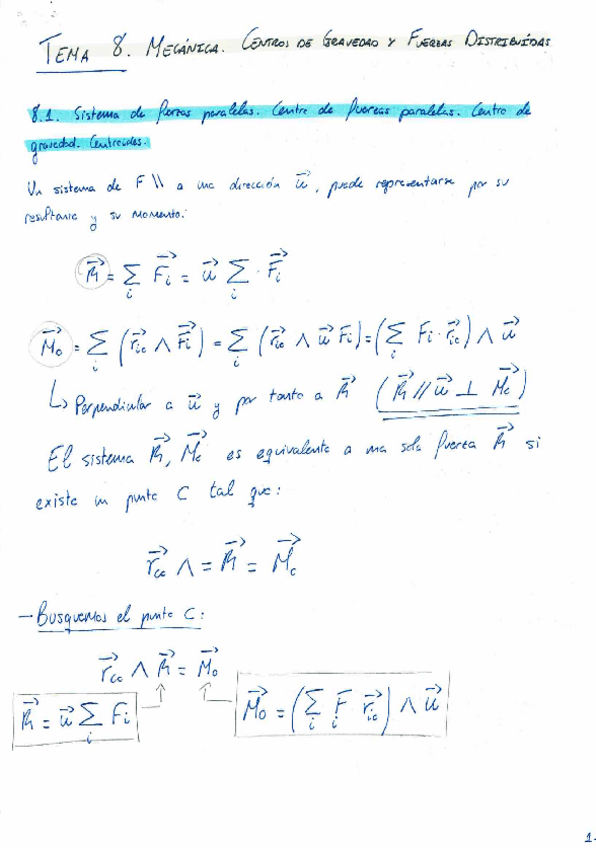 TEMA 8. MECÁNICA. CENTROS DE GRAVEDAD Y FUERZAS DISTRIBUÍDAS
8.1. Sistema de fuerzas paralelas. Centro de fuerzas paralelas. Centro de
gravedad. Centroides.
Un sistema de F \\ a una dirección u⃗, puede representarse por su
resultante y su momento:
R⃗ = Σᵢ F⃗ᵢ = u⃗ Σᵢ · F⃗ᵢ
M⃗₀ = Σᵢ (r⃗ᵢₒ ∧ F⃗ᵢ) = Σᵢ (r⃗ᵢₒ ∧ u⃗ Fᵢ) = (Σᵢ Fᵢ · r⃗ᵢₒ) ∧ u⃗
↳ Perpendicular a u⃗ y por tanto a R⃗ (R⃗ // u⃗ ⊥ M⃗c)
El sistema R⃗, M⃗c es equivalente a una sola fuerza R⃗ si
existe un punto C tal que:
r⃗co ∧ = R⃗ = M⃗c
- Busquemos el punto C:
r⃗co ∧ R⃗ = M⃗₀
R⃗ = u⃗ Σᵢ Fᵢ
M⃗₀ = (Σᵢ F⃗ᵢ r⃗ᵢₒ) ∧ u⃗
1-